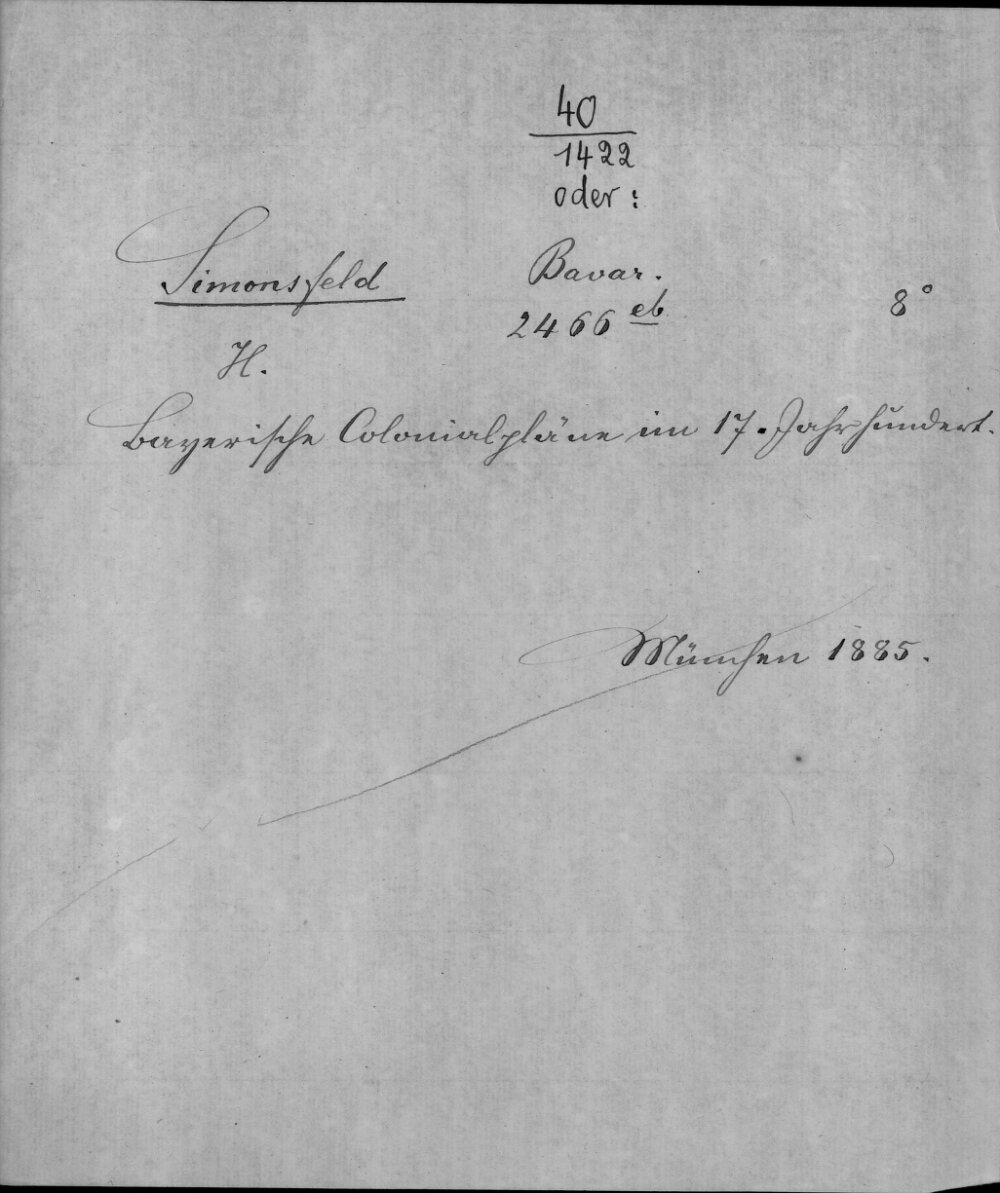 40
1422
oder:
Simonsfeld
Bavar.
2466 eb
8°
H.
Bayerische Colonialpläne im 17. Jahrhundert.
München 1885.